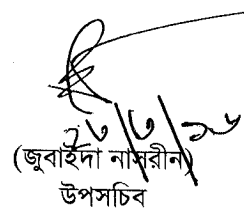 ২৩/৬/১৬
(জুবাইদা নাসরীন)
উপসচিব